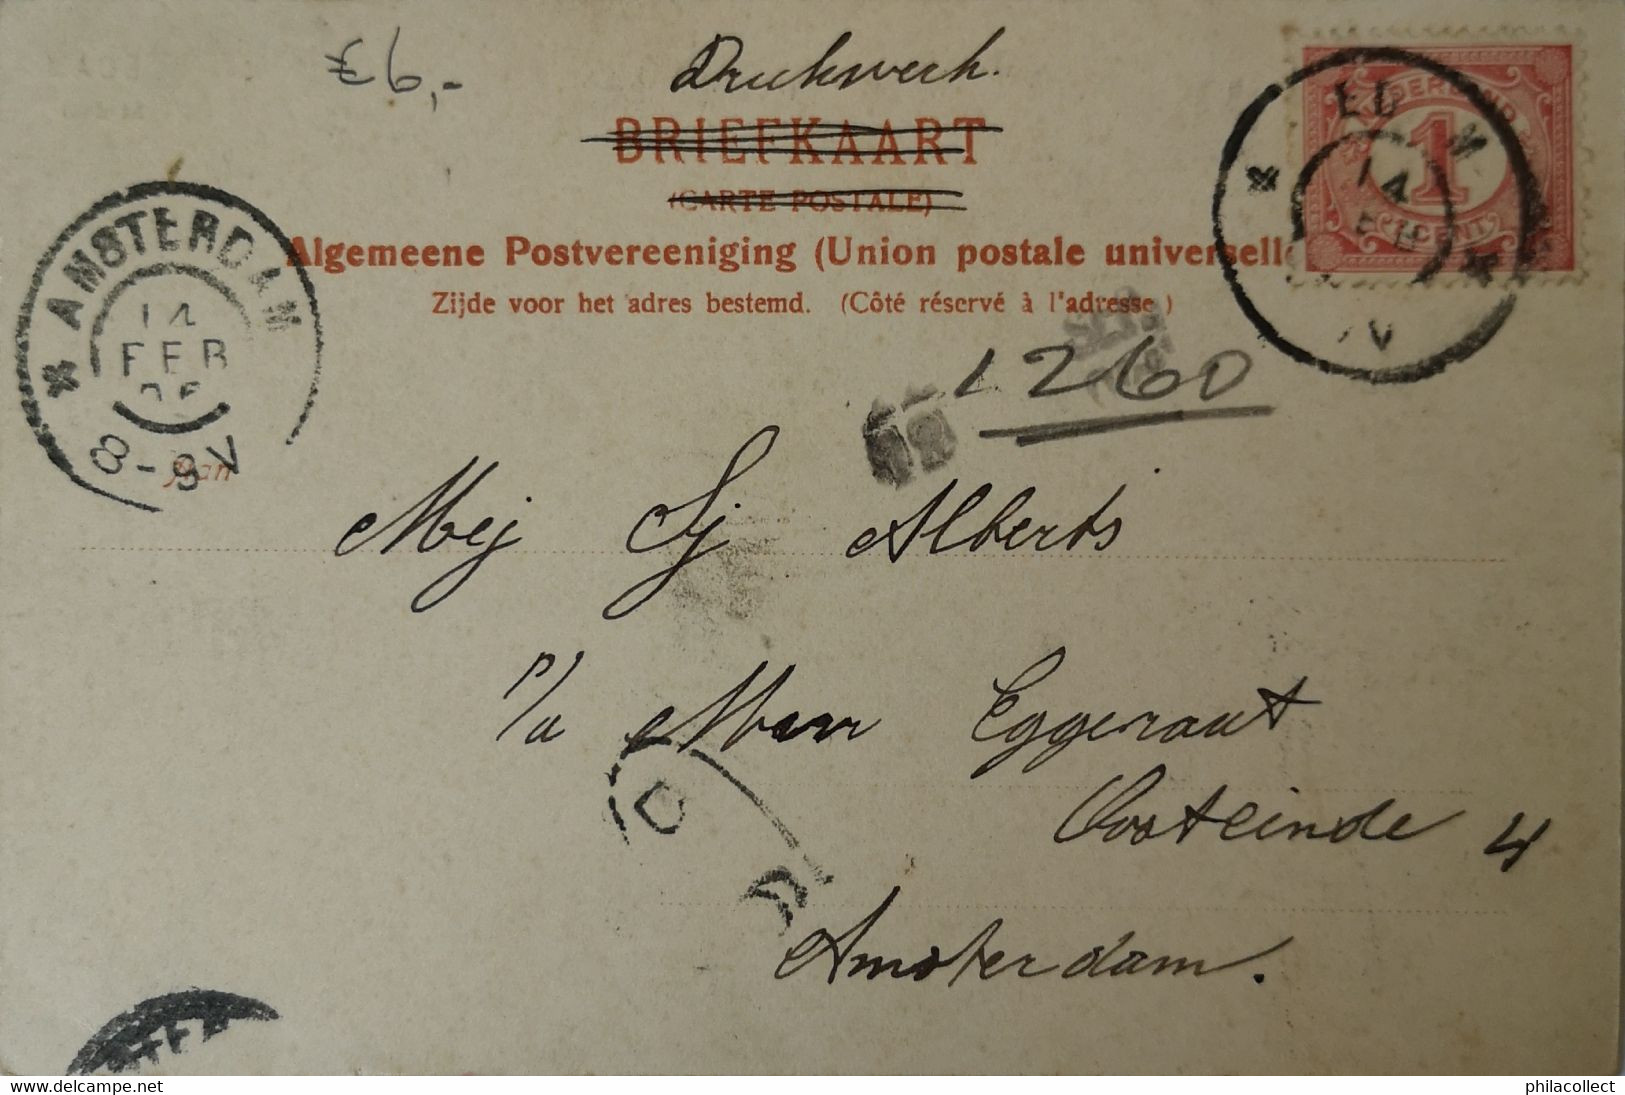 £6,-
Drukwerk.
BRIEFKAART
(CARTE POSTALE)
Algemeene Postvereeniging (Union postale universelle
Zijde voor het adres bestemd. (Côté réservé à l'adresse)
NEDERLAND
1
CENT
14
AMSTERDAM
14
FEB
8-9V
1260
Aan
Mej Sj Alberts
p/a Meur Eggeraat
Oosteinde 4
Amsterdam.
philacollect